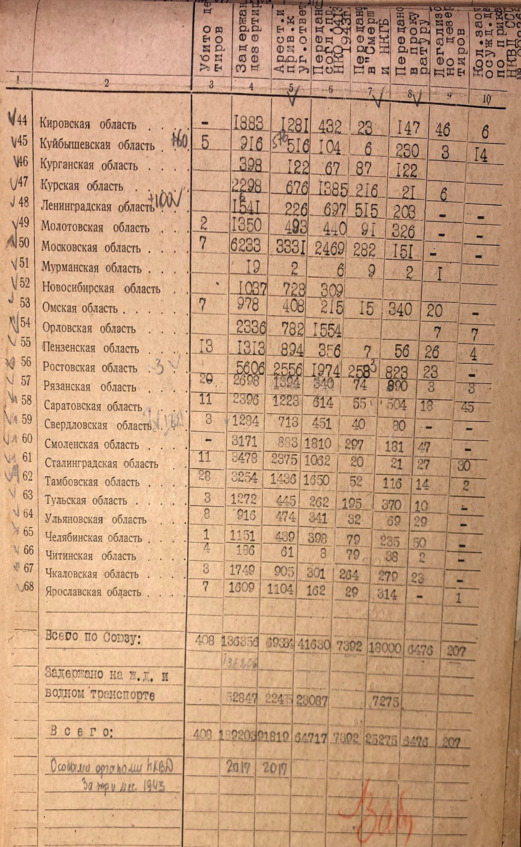 Убито де Задержа Арест.и Передан Передан Передано Легализ Кол.заоч
тиров дезерта прив.к в "Смерш в проку но дезер осужд.де
уг.ответ 1943г. и НКГБ ратуру тиров по прика
1 2 3 4 5 6 7 8 9 10
44 Кировская область . . . - 1883 1281 432 23 147 46 6
45 Куйбышевская область 5 916 516 104 6 230 3 14
46 Курганская область . . 398 122 67 87 122
47 Курская область . . . 2298 676 1385 216 21 6
48 Ленинградская область 1541 226 697 515 203 - -
49 Молотовская область . . 2 1350 493 440 91 326 - -
50 Московская область . . 7 6233 3331 2469 282 151 - -
51 Мурманская область . . 19 2 6 9 2 1
52 Новосибирская область 1037 728 309
53 Омская область . . . 7 978 408 215 15 340 20 -
54 Орловская область 2336 782 1554 7 7
55 Пензенская область . . 13 1313 894 356 7 56 26 4
56 Ростовская область . . 5606 2556 1974 253 823 23 -
57 Рязанская область . . 20 2698 1394 340 74 890 3 3
58 Саратовская область . . 11 2396 1223 614 55 504 18 45
59 Свердловская область 3 1284 713 451 40 80 - -
60 Смоленская область . . - 3171 883 1810 297 181 47 -
61 Сталинградская область 11 3478 2375 1062 20 21 27 30
62 Тамбовская область . . 28 3254 1436 1650 52 116 14 2
63 Тульская область . . 3 1272 445 262 195 370 10 -
64 Ульяновская область . . 8 916 474 341 32 69 29 -
65 Челябинская область . . 1 1151 439 398 79 235 50 -
66 Читинская область . . 4 186 61 8 79 38 2 -
67 Чкаловская область . . 3 1749 905 301 264 279 23 -
68 Ярославская область . . 7 1609 1104 162 29 314 - 1
Всего по Союзу: 408 136356 41630 7392 18000 6476 207
Задержано на ж.д. и
водном транспорте 52847 23087 7275
Всего: 408 64717 7392 25275 6476 207
Особыми органами НКВД 2017 2017
За три мес. 1943